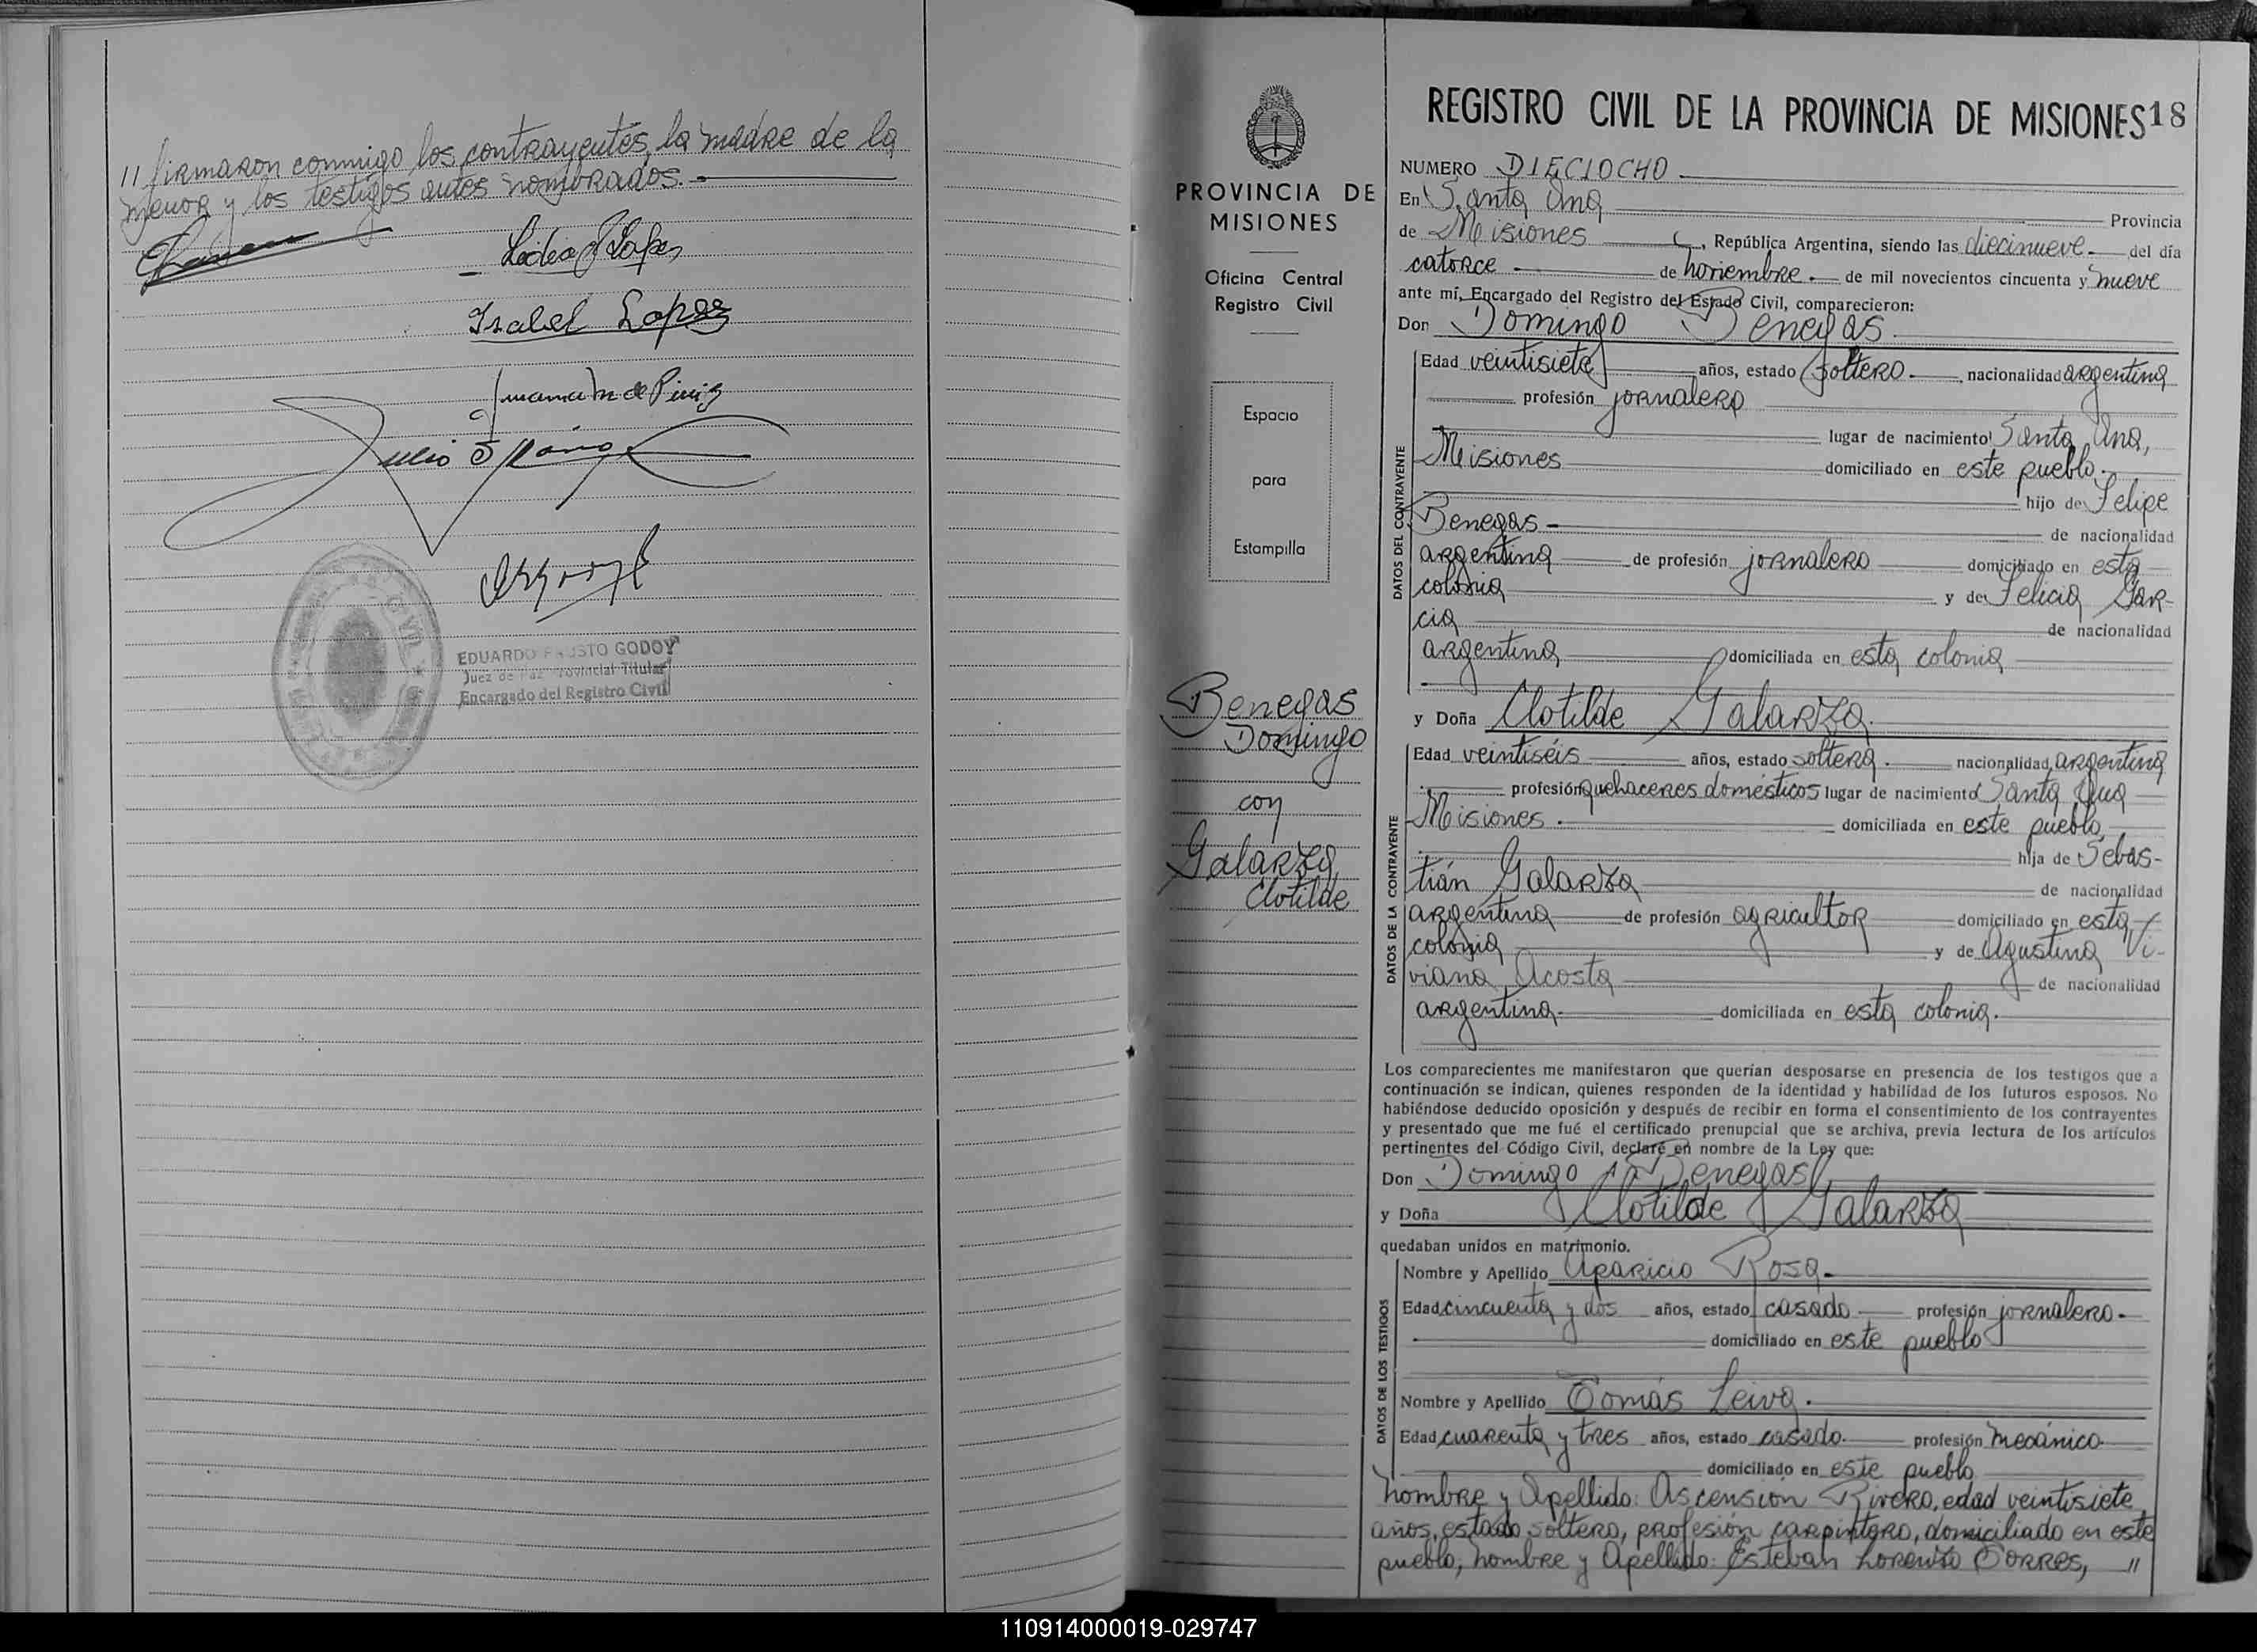 // firmaron conmigo los contrayentes, la madre de la
menor y los testigos antes nombrados.
Isabel Lopez
Julio
EDUARDO FAUSTO GODOY
Juez de Paz Provincial Titular
Encargado del Registro Civil
PROVINCIA DE
MISIONES
Oficina Central
Registro Civil
Espacio
para
Estampilla
Benegas
Domingo
con
Galarza
Clotilde
REGISTRO CIVIL DE LA PROVINCIA DE MISIONES 18
NUMERO DIECIOCHO
En Santa Ana Provincia
de Misiones, República Argentina, siendo las diecinueve del día
catorce de noviembre de mil novecientos cincuenta y nueve
ante mí, Encargado del Registro del Estado Civil, comparecieron:
Don Domingo Benegas
DATOS DEL CONTRAYENTE
Edad veintisiete años, estado soltero nacionalidad argentina
profesión jornalero
lugar de nacimiento Santa Ana,
Misiones domiciliado en este pueblo.
hijo de Felipe
Benegas de nacionalidad
argentina de profesión jornalero domiciliado en esta
colonia y de Felicia Gar-
cia de nacionalidad
argentina domiciliada en esta colonia
y Doña Clotilde Galarza.
DATOS DE LA CONTRAYENTE
Edad veintiséis años, estado soltera. nacionalidad argentina
profesión quehaceres domésticos lugar de nacimiento Santa Ana
Misiones. domiciliada en este pueblo,
hija de Sebas-
tián Galarza de nacionalidad
argentina de profesión agricultor domiciliado en esta
colonia y de Agustina Vi-
viana Acosta de nacionalidad
argentina. domiciliada en esta colonia.
Los comparecientes me manifestaron que querían desposarse en presencia de los testigos que a
continuación se indican, quienes responden de la identidad y habilidad de los futuros esposos. No
habiéndose deducido oposición y después de recibir en forma el consentimiento de los contrayentes
y presentado que me fué el certificado prenupcial que se archiva, previa lectura de los artículos
pertinentes del Código Civil, declaré en nombre de la Ley que:
Don Domingo Benegas
y Doña Clotilde Galarza
quedaban unidos en matrimonio.
DATOS DE LOS TESTIGOS
Nombre y Apellido Aparicio Rosa.
Edad cincuenta y dos años, estado casado profesión jornalero.
domiciliado en este pueblo
Nombre y Apellido Tomás Leiva.
Edad cuarenta y tres años, estado casado. profesión mecánico.
domiciliado en este pueblo
Nombre y Apellido: Ascension Rivero, edad veintisiete
años, estado soltero, profesión carpintero, domiciliado en este
pueblo; Nombre y Apellido: Esteban Lorenzo Torres, //
110914000019-029747